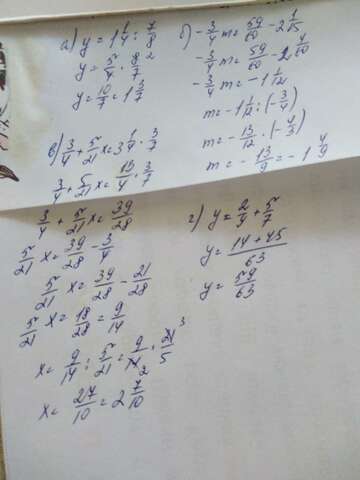 а) y = 1 1/4 : 7/8
y = 5/4 · 8/7 2
y = 10/7 = 1 3/7
б) - 3/4 m = 59/60 - 2 1/15
- 3/4 m = 59/60 - 2 4/60
- 3/4 m = - 1 1/12
m = - 1 1/12 : (- 3/4)
m = - 13/12 · (- 4/3)
m = - 13/9 = - 1 4/9
в) 3/4 + 5/21 x = 3 1/4 · 3/7
3/4 + 5/21 x = 13/4 · 3/7
3/4 + 5/21 x = 39/28
5/21 x = 39/28 - 3/4
5/21 x = 39/28 - 21/28
5/21 x = 18/28 = 9/14
x = 9/14 : 5/21 = 9/14 2 · 21/5 3
x = 27/10 = 2 7/10
г) y = 2/9 + 5/7
y = 14 + 45/63
y = 59/63